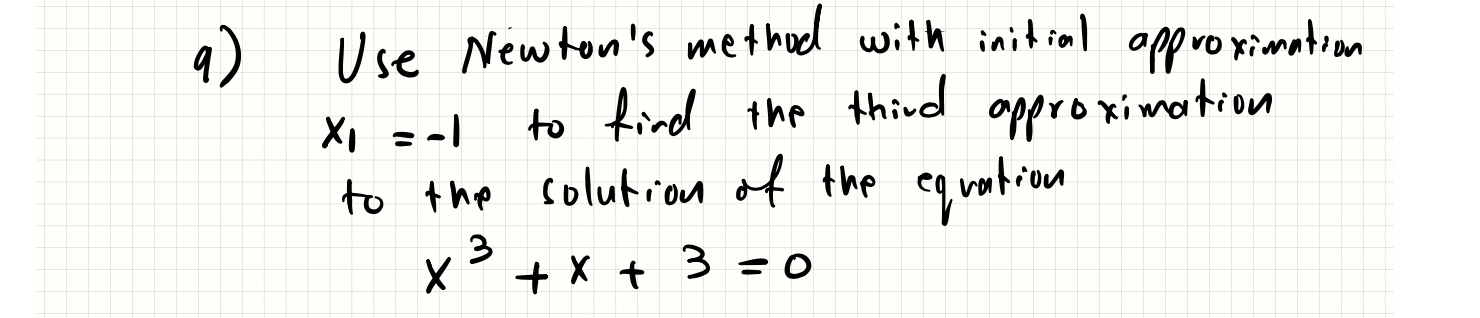 a) Use Newton's method with initial approximation
x₁ = -1 to find the third approximation
to the solution of the equation
x³ + x + 3 = 0